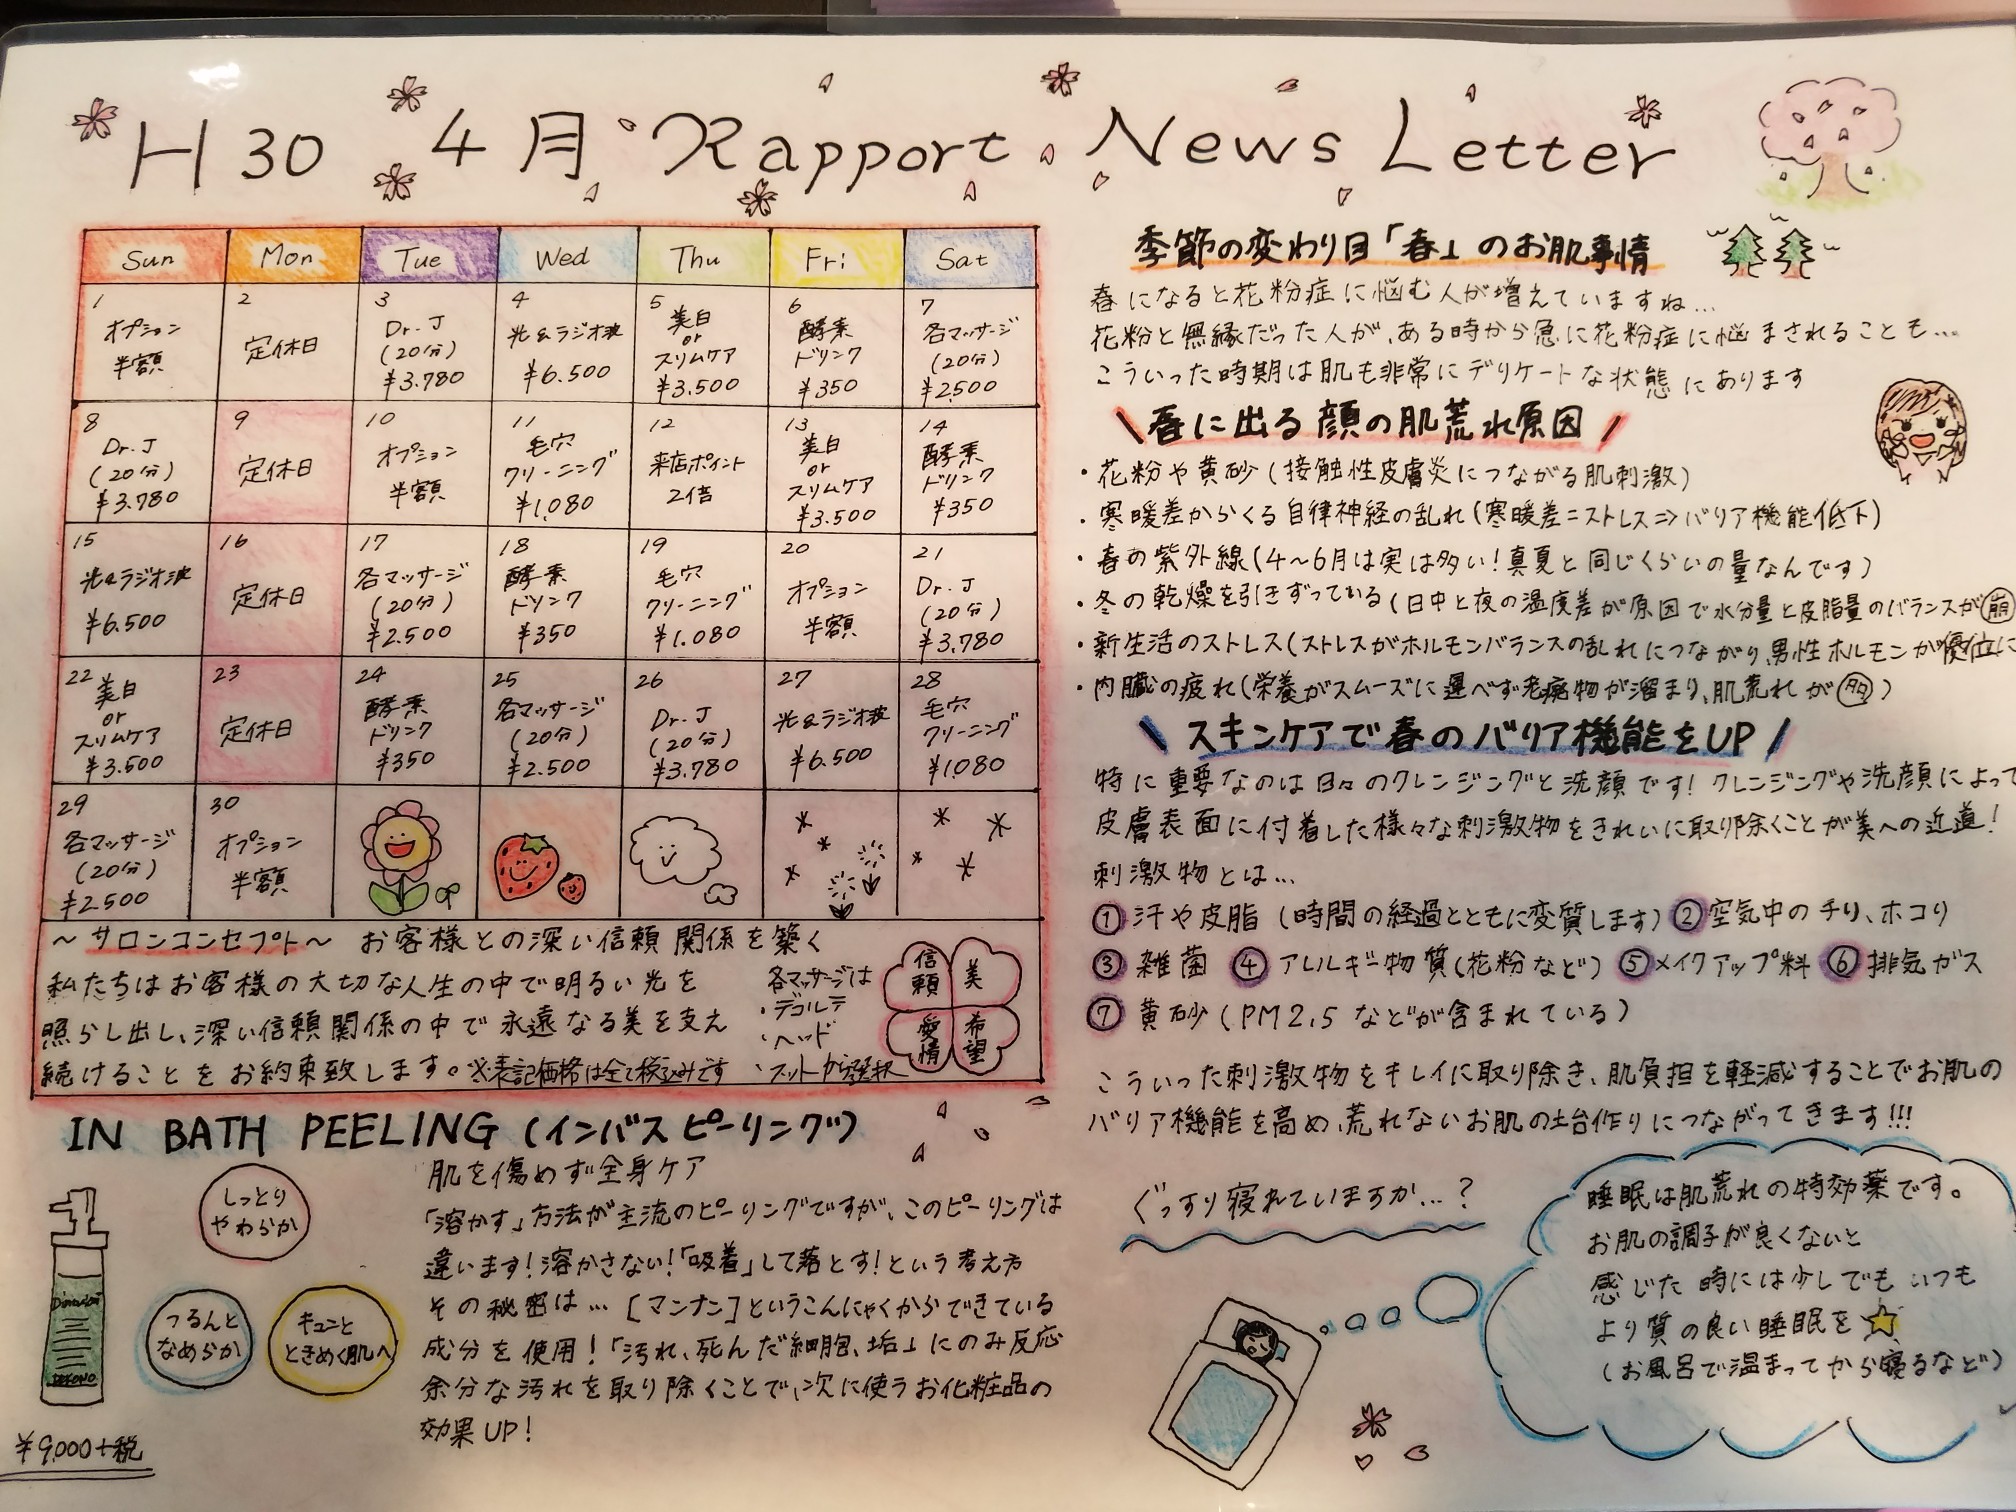 H30 4月 Rapport News Letter
Sun Mon Tue Wed Thu Fri Sat
1
オプション
半額
2
定休日
3
Dr.J
(20分)
¥3.780
4
光&ラジオ波
¥6.500
5
美白
or
スリムケア
¥3.500
6
酵素
ドリンク
¥350
7
各マッサージ
(20分)
¥2500
8
Dr.J
(20分)
¥3.780
9
定休日
10
オプション
半額
11
毛穴
クリーニング
¥1,080
12
来店ポイント
2倍
13
美白
or
スリムケア
¥3.500
14
酵素
ドリンク
¥350
15
光&ラジオ波
¥6.500
16
定休日
17
各マッサージ
(20分)
¥2.500
18
酵素
ドリンク
¥350
19
毛穴
クリーニング
¥1.080
20
オプション
半額
21
Dr.J
(20分)
¥3.780
22
美白
or
スリムケア
¥3.500
23
定休日
24
酵素
ドリンク
¥350
25
各マッサージ
(20分)
¥2.500
26
Dr.J
(20分)
¥3.780
27
光&ラジオ波
¥6.500
28
毛穴
クリーニング
¥1080
29
各マッサージ
(20分)
¥2500
30
オプション
半額
～サロンコンセプト～ お客様との深い信頼関係を築く
私たちはお客様の大切な人生の中で明るい光を
照らし出し、深い信頼関係の中で永遠なる美を支え
続けることをお約束致します。※表記価格は全て税込みです
各マッサージは
・デコルテ
・ヘッド
・フットから選択
信頼
美
愛情
希望
IN BATH PEELING (インバスピーリング)
しっとり
やわらか
つるんと
なめらか
キュンと
ときめく肌へ
¥9,000+税
肌を傷めず全身ケア
「溶かす」方法が主流のピーリングですが、このピーリングは
違います!溶かさない!「吸着」して落とす!という考え方
その秘密は…[マンナン]というこんにゃくからできている
成分を使用!「汚れ、死んだ細胞、垢」にのみ反応
余分な汚れを取り除くことで、次に使うお化粧品の
効果UP!
季節の変わり目「春」のお肌事情
春になると花粉症に悩む人が増えていますね…
花粉と無縁だった人が、ある時から急に花粉症に悩まされることも…
こういった時期は肌も非常にデリケートな状態にあります
\春に出る顔の肌荒れ原因/
・花粉や黄砂(接触性皮膚炎につながる肌刺激)
・寒暖差からくる自律神経の乱れ(寒暖差=ストレス⇒バリア機能低下)
・春の紫外線(4～6月は実は多い!真夏と同じくらいの量なんです)
・冬の乾燥を引きずっている(日中と夜の温度差が原因で水分量と皮脂量のバランスが崩
・新生活のストレス(ストレスがホルモンバランスの乱れにつながり、男性ホルモンが優位に
・内臓の疲れ(栄養がスムーズに運べず老廃物が溜まり、肌荒れが多)
\スキンケアで春のバリア機能をUP/
特に重要なのは日々のクレンジングと洗顔です!クレンジングや洗顔によって
皮膚表面に付着した様々な刺激物をきれいに取り除くことが美への近道!
刺激物とは…
①汗や皮脂(時間の経過とともに変質します)②空気中のチリ、ホコリ
③雑菌 ④アレルギー物質(花粉など)⑤メイクアップ料 ⑥排気ガス
⑦黄砂(PM2.5などが含まれている)
こういった刺激物をキレイに取り除き、肌負担を軽減することでお肌の
バリア機能を高め、荒れないお肌の土台作りにつながってきます!!!
ぐっすり寝れていますか…?
睡眠は肌荒れの特効薬です。
お肌の調子が良くないと
感じた時には少しでもいつも
より質の良い睡眠を☆
(お風呂で温まってから寝るなど)